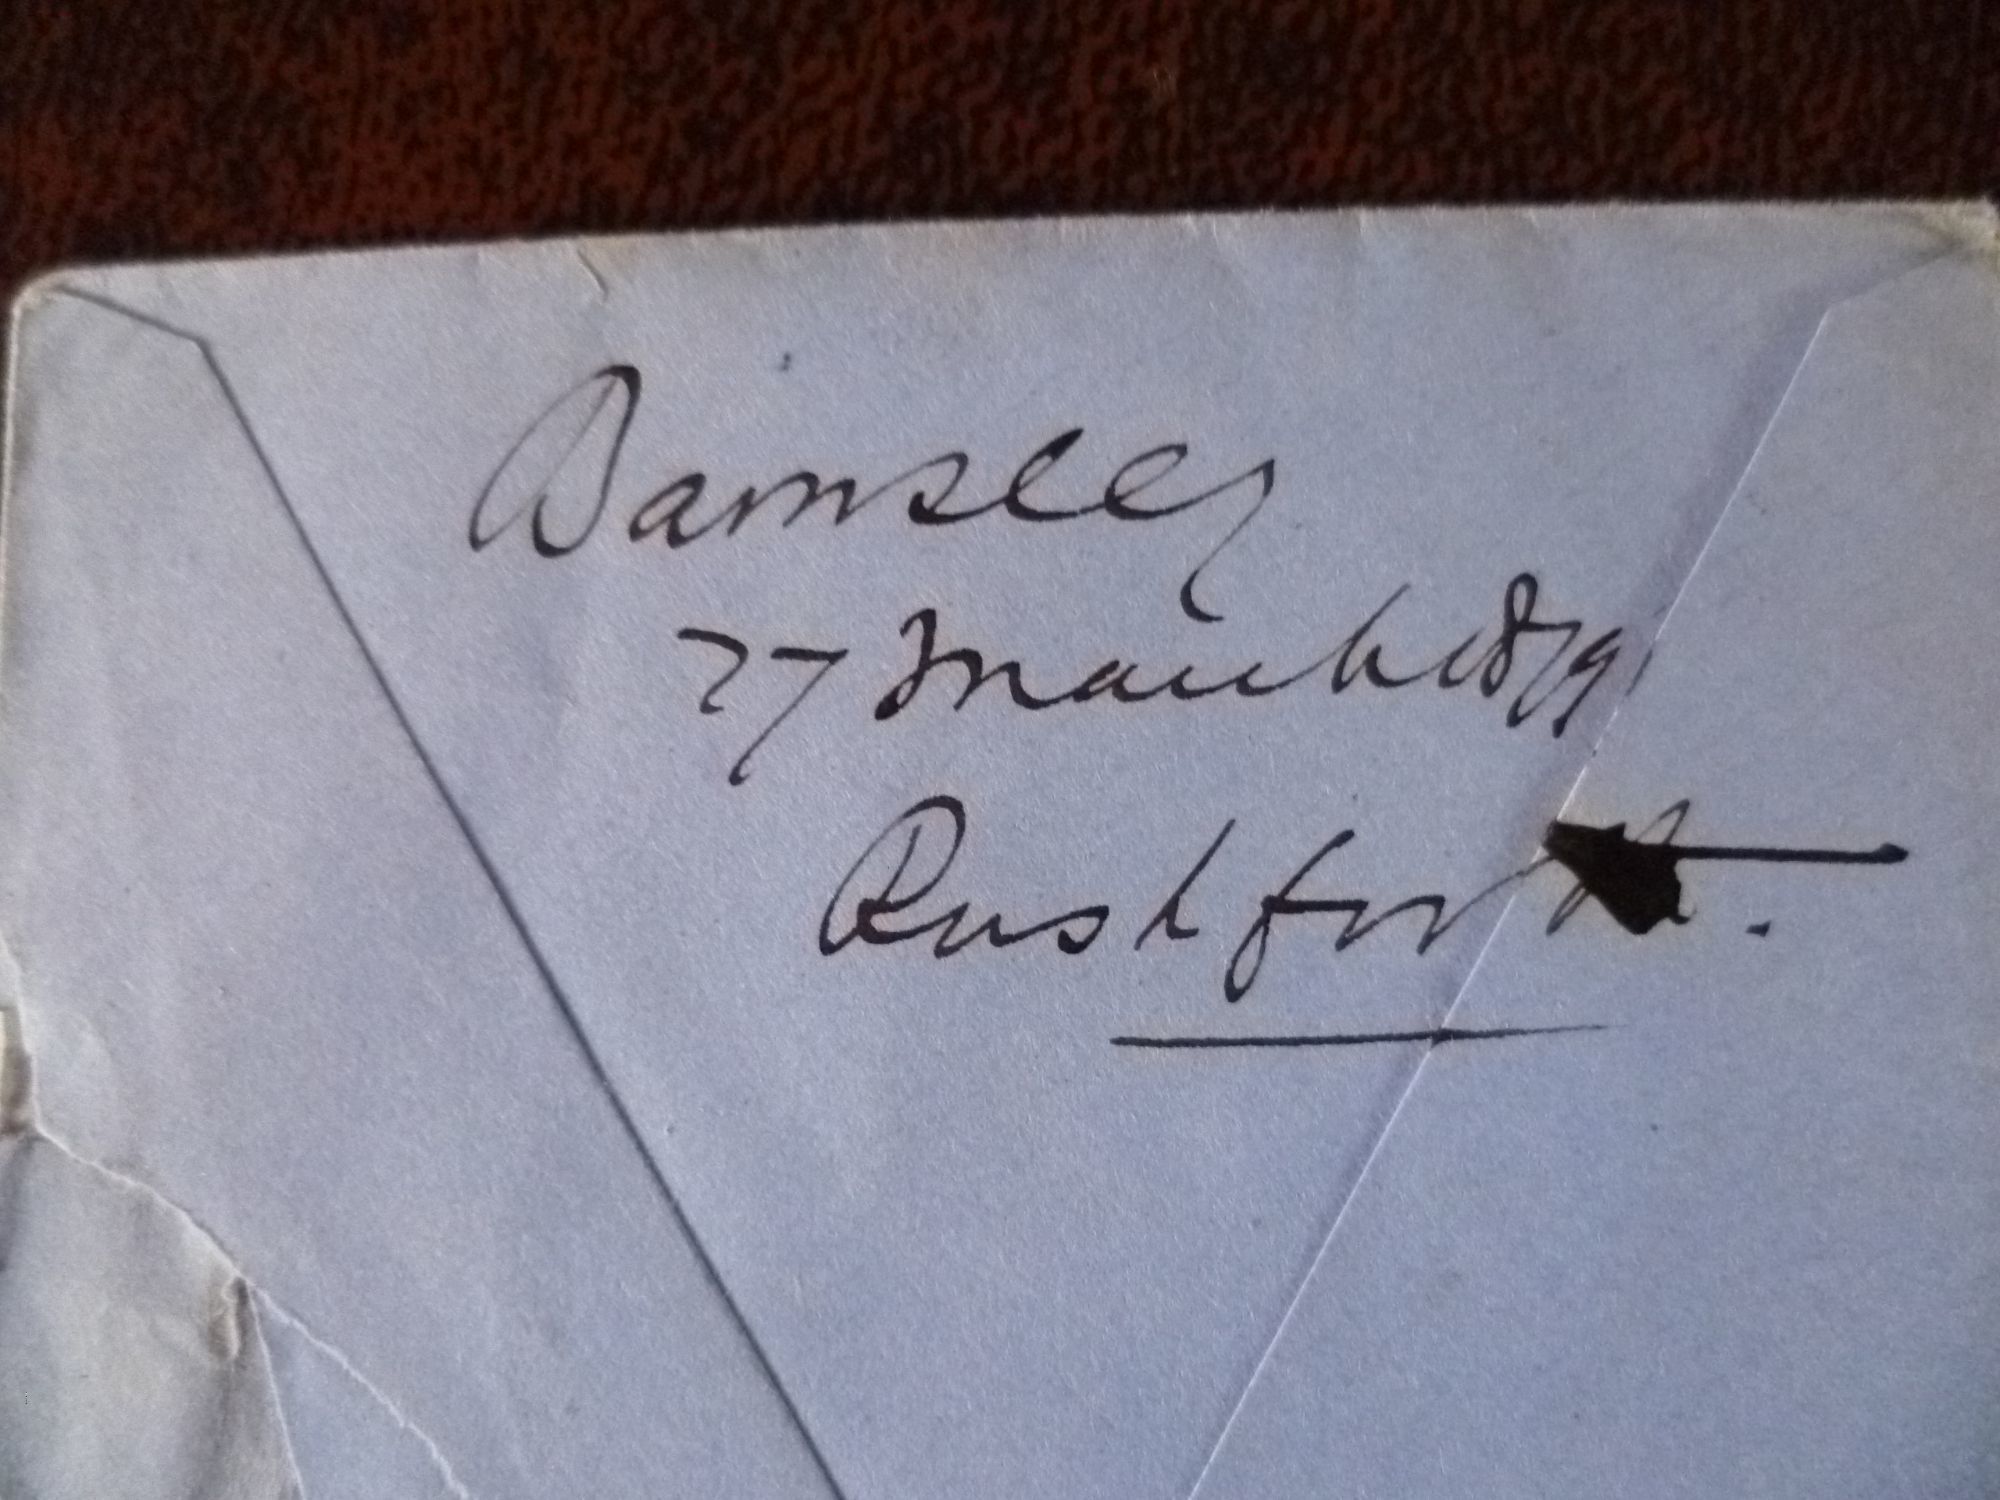 Barnsley
27 March 1879
Rushforth.